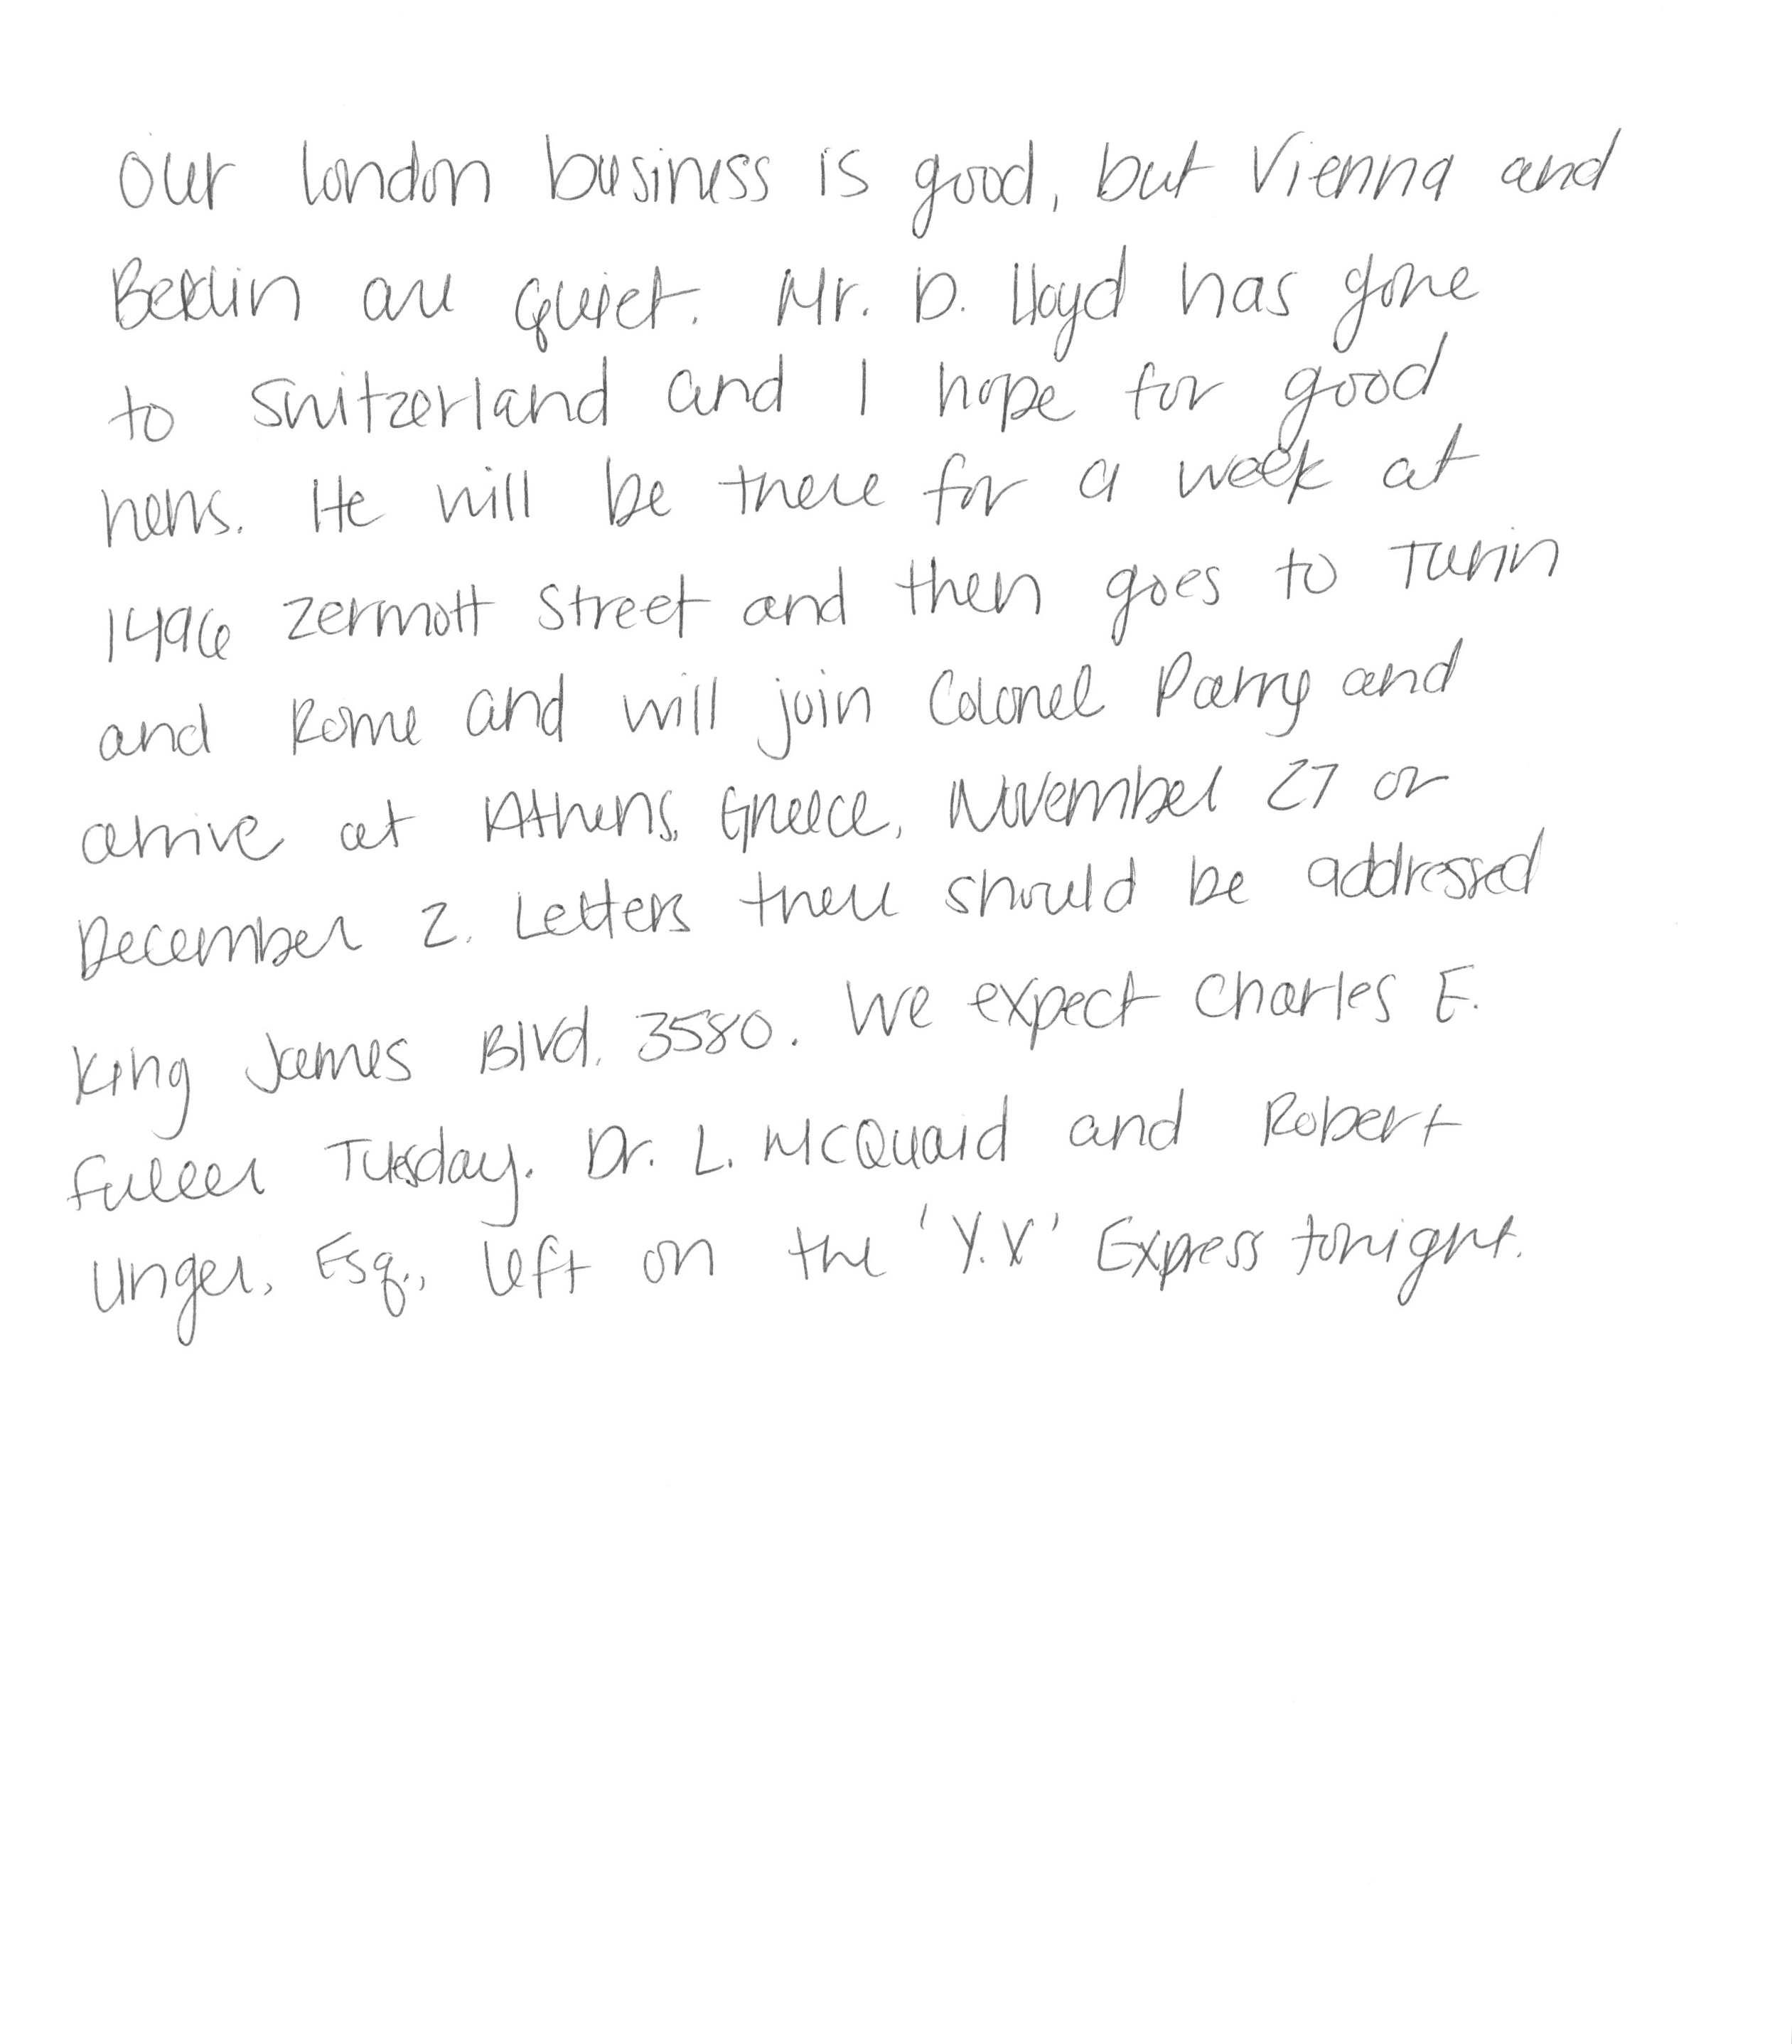 Our London business is good, but Vienna and
Berlin are quiet. Mr. D. Lloyd has gone
to Switzerland and I hope for good
news. He will be there for a week at
1496 Zermott Street and then goes to Turin
and Rome and will join Colonel Parry and
arrive at Athens, Greece, November 27 or
December 2. Letters there should be addressed
King James Blvd. 3580. We expect Charles E.
Fuller Tuesday. Dr. L. McQuaid and Robert
Unger, Esq., left on the 'Y.X' Express tonight.